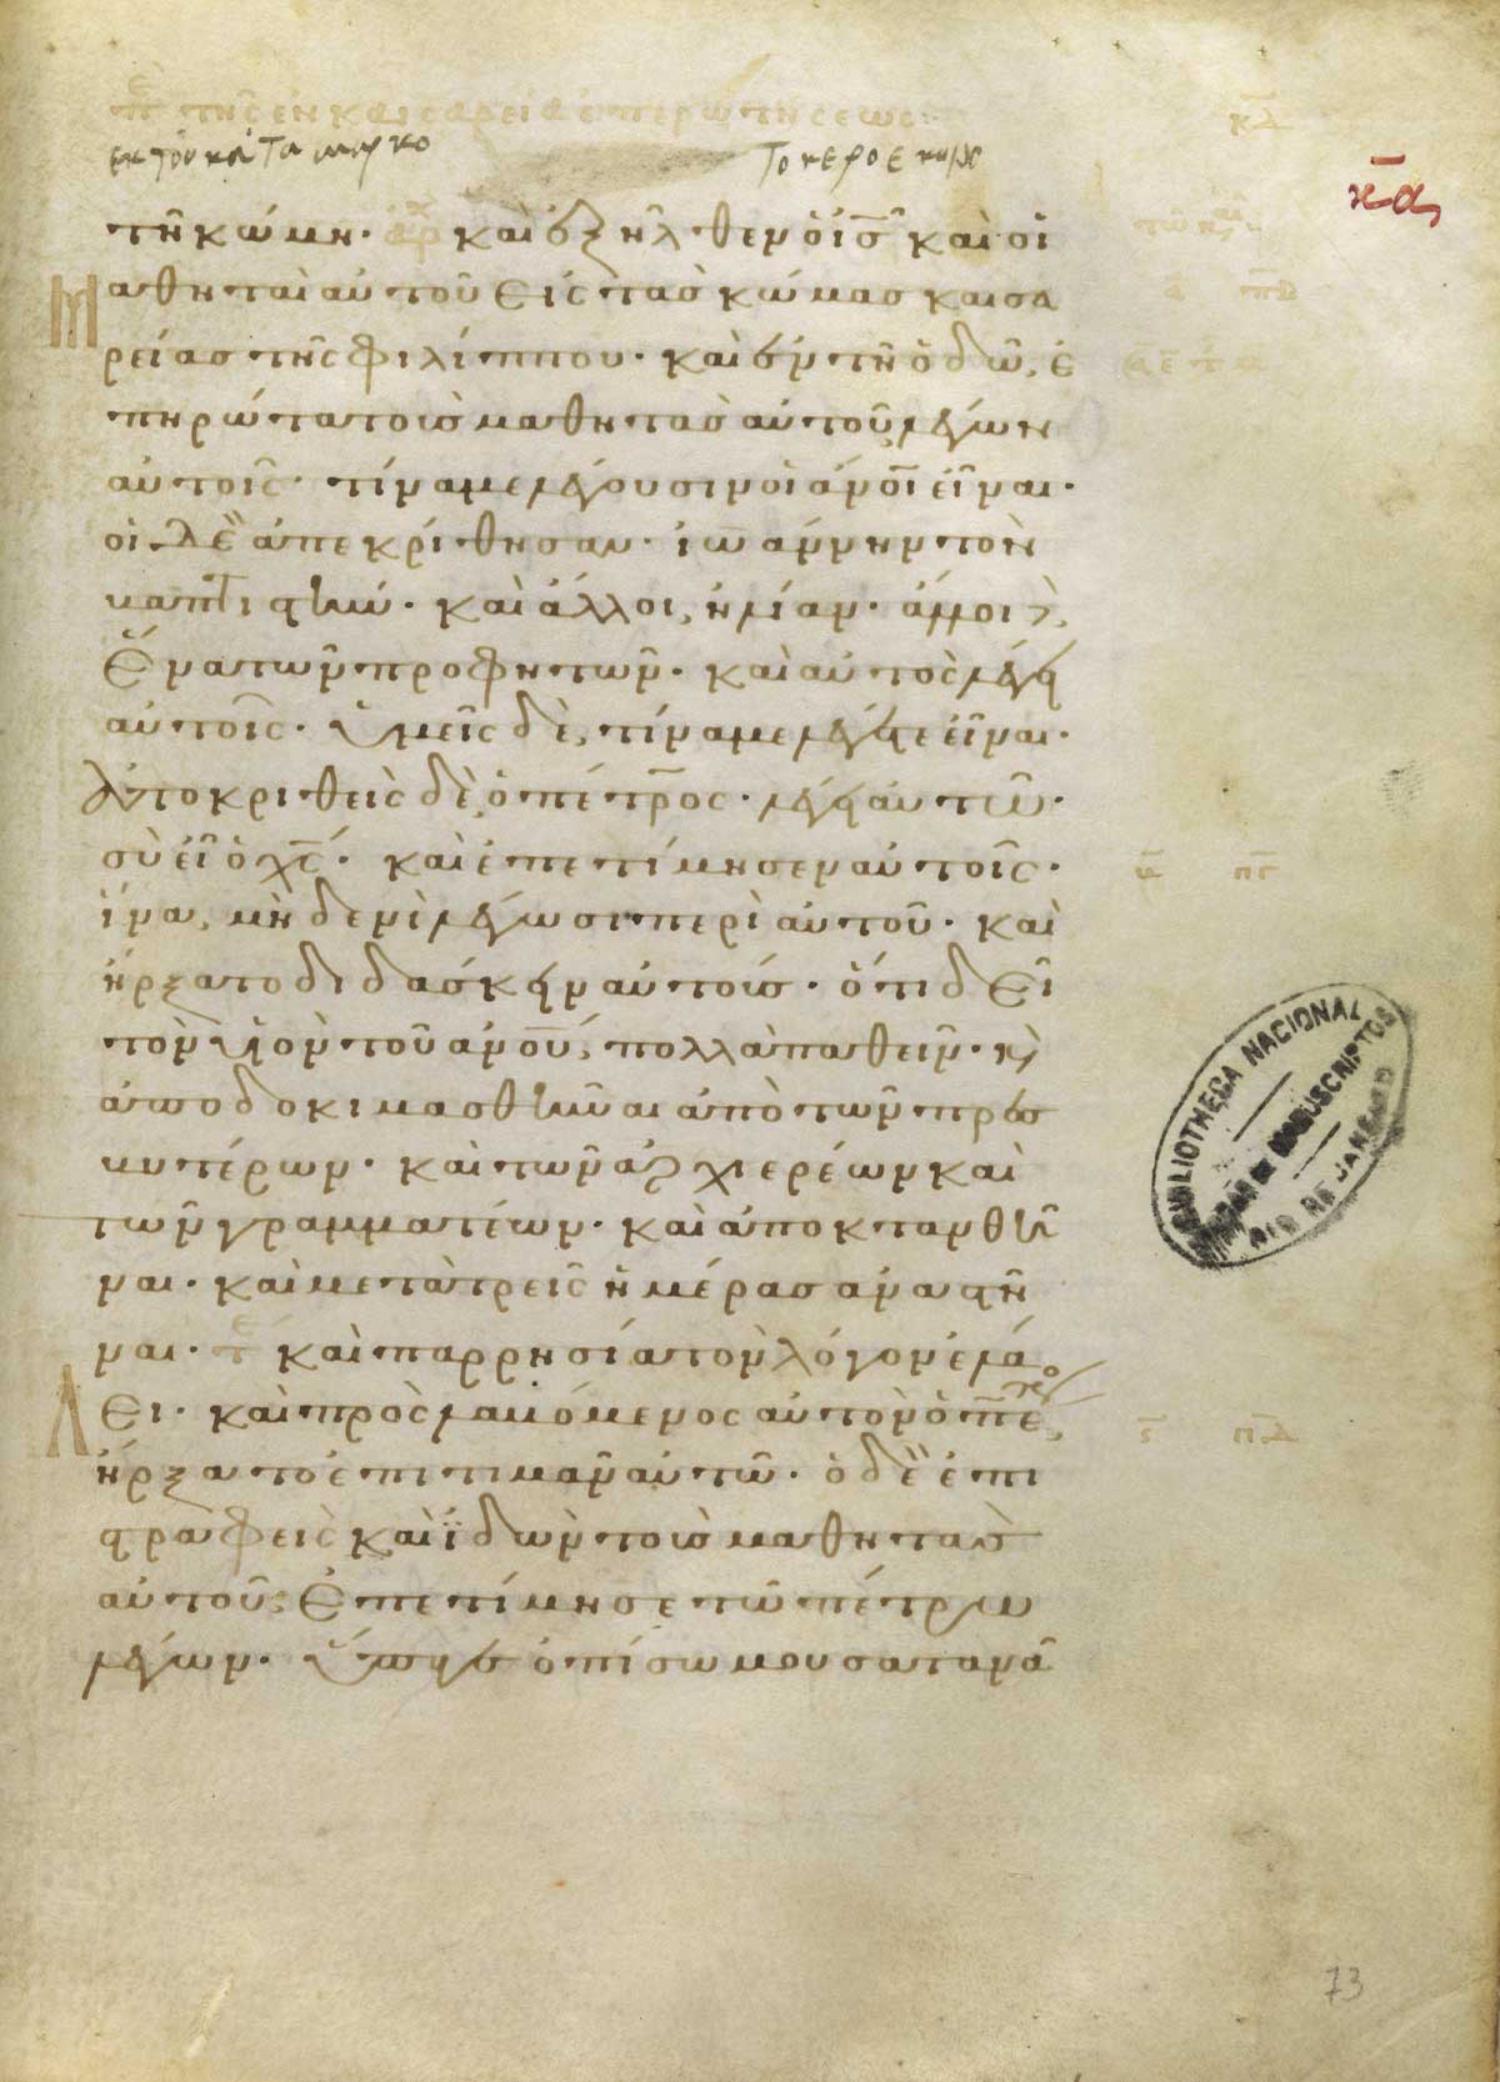 τῆς ἐν καισαρεία ἐπερωτήσεως κδ
εκ του κατα μαρκο
κα
τῆ κώμη· καὶ ἐξῆλθεν ὁ ισ καὶ οἱ
μαθηταὶ αὐτοῦ εἰς τὰσ κώμασ καισα
ρείασ τῆς φιλίππου· καὶ ἐν τῆ ὁδῶ, ἐ
πηρώτα τοὺσ μαθητὰσ αὐτοῦ, λέγων
αὐτοῖς· τίνα με λέγουσιν οἱ ανοι εἶναι·
οἱ δὲ ἀπεκρίθησαν· ιω άννην τὸν
βαπτιστήν· καὶ ἄλλοι, ἠλίαν· ἄλλοι δὲ,
ἕνα τῶν προφητῶν· καὶ αὐτὸς λέγει
αὐτοῖς· ὑμεῖς δὲ, τίνα με λέγετε εἶναι·
ἀποκριθεὶς δὲ ὁ πέτρος· λέγει αὐτῶ·
σὺ εἶ ὁ χς· καὶ ἐπετίμησεν αὐτοῖς· πγ
ἵνα, μηδενὶ λέγωσι περὶ αὐτοῦ· καὶ
ἤρξατο διδάσκειν αὐτούσ· ὅτι δεῖ
τὸν υἱὸν τοῦ ανου, πολλὰ παθεῖν· κὶ
ἀποδοκιμασθῆναι ἀπὸ τῶν πρεσ
βυτέρων· καὶ τῶν ἀρχιερέων καὶ
τῶν γραμματέων· καὶ ἀποκτανθῆ
ναι· καὶ μετὰ τρεῖς ἡμέρασ ἀναστῆ
ναι· καὶ παρρησία τὸν λόγον ἐλά
λει· καὶ προσλαβόμενος αὐτὸν ὁ πετρο, πδ
ἤρξατο ἐπιτιμᾶν αὐτῶ· ὁ δὲ ἐπι
στραφεὶς καὶ ἰδὼν τοὺσ μαθητὰσ
αὐτοῦ, ἐπετίμησε τῶ πέτρω
λέγων· ὕπαγε ὀπίσω μου σατανᾶ
BIBLIOTHECA NACIONAL
MANUSCRIPTOS
RIO DE JANEIRO
73